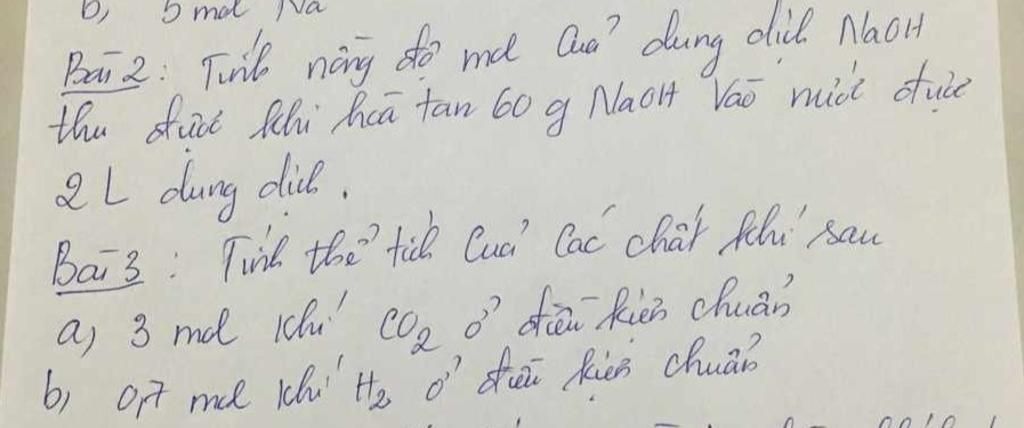 b, 5 mol Na
Bài 2: Tính nồng độ mol của dung dịch NaOH
thu được khi hoà tan 60 g NaOH vào nước được
2 L dung dịch.
Bài 3: Tính thể tích của các chất khí sau
a) 3 mol khí CO₂ ở điều kiện chuẩn
b, 0,7 mol khí H₂ ở điều kiện chuẩn